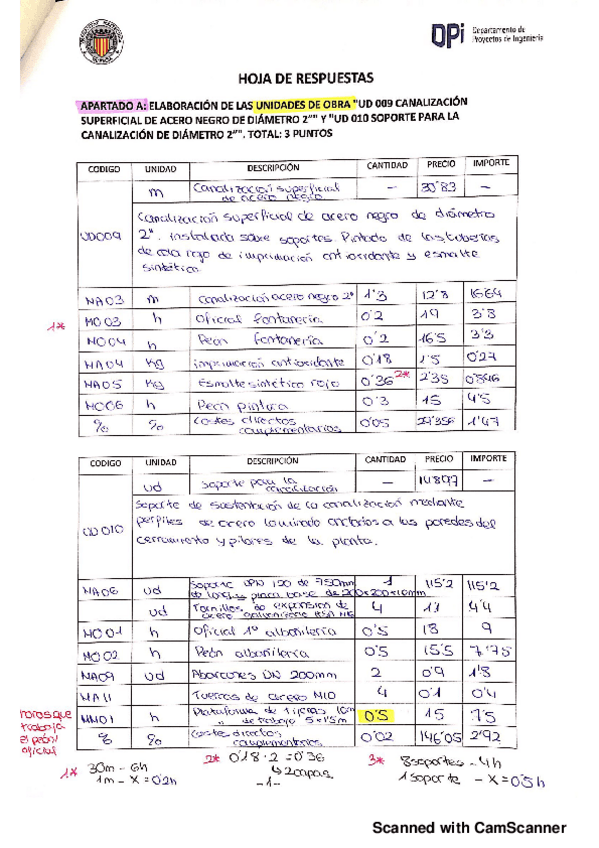 DPi Departamento de
Proyectos de Ingeniería
HOJA DE RESPUESTAS
APARTADO A: ELABORACIÓN DE LAS UNIDADES DE OBRA "UD 009 CANALIZACIÓN
SUPERFICIAL DE ACERO NEGRO DE DIÁMETRO 2”" Y "UD 010 SOPORTE PARA LA
CANALIZACIÓN DE DIÁMETRO 2”". TOTAL: 3 PUNTOS
CODIGO UNIDAD DESCRIPCIÓN CANTIDAD PRECIO IMPORTE
m Canalización superficial de acero negro - 30'83 -
UD009
Canalización superficial de acero negro de diámetro
2". instalada sobre soportes. Pintado de las tuberías
de color rojo de imprimación antioxidante y esmalte
sintético.
MA03 m canalización acero negro 2" 1'3 12'8 16'64
1* MO03 h Oficial fontanería 0'2 19 3'8
MO04 h Peón fontanería 0'2 16'5 3'3
MA04 Kg imprimación antioxidante 0'18 1'5 0'27
MA05 Kg Esmalte sintético rojo 0'36 2* 2'35 0'846
MO06 h Peón pintura 0'3 15 4'5
% % Costes directos complementarios 0'05 29'356 1'47
CODIGO UNIDAD DESCRIPCIÓN CANTIDAD PRECIO IMPORTE
ud Soporte para la canalización - 148'97 -
UD010
Soporte de sustentación de la canalización mediante
perfiles de acero laminado anclados a las paredes del
cerramiento y pilares de la planta.
MA06 ud Soporte UPN 120 de 750mm 1 115'2 115'2
de long y placa base de 200x200x10mm
ud Tornillos de expansión de 4 1'1 4'4
acero galvanizado
MO01 h Oficial 1ª albañilería 0'5 18 9
MO02 h Peón albañilería 0'5 15'5 7'75
MA09 ud Abarcones DN 200mm 2 0'9 1'8
MA11 Tuercas de acero M10 4 0'1 0'4
MM01 h Plataforma de tijeras 10m 0'5 15 7'5
" de trabajo 5x1'5m
% % Coste directos complementarios 0'02 146'05 2'92
horas que
trabaja
el peón/
oficial
1* 30m - 6h
1m - X = 0'2h
2* 0'18 · 2 = 0'36
→ 2 capas
3* 8 soportes - 4h
1 soporte - X = 0'5h
-1-
Scanned with CamScanner